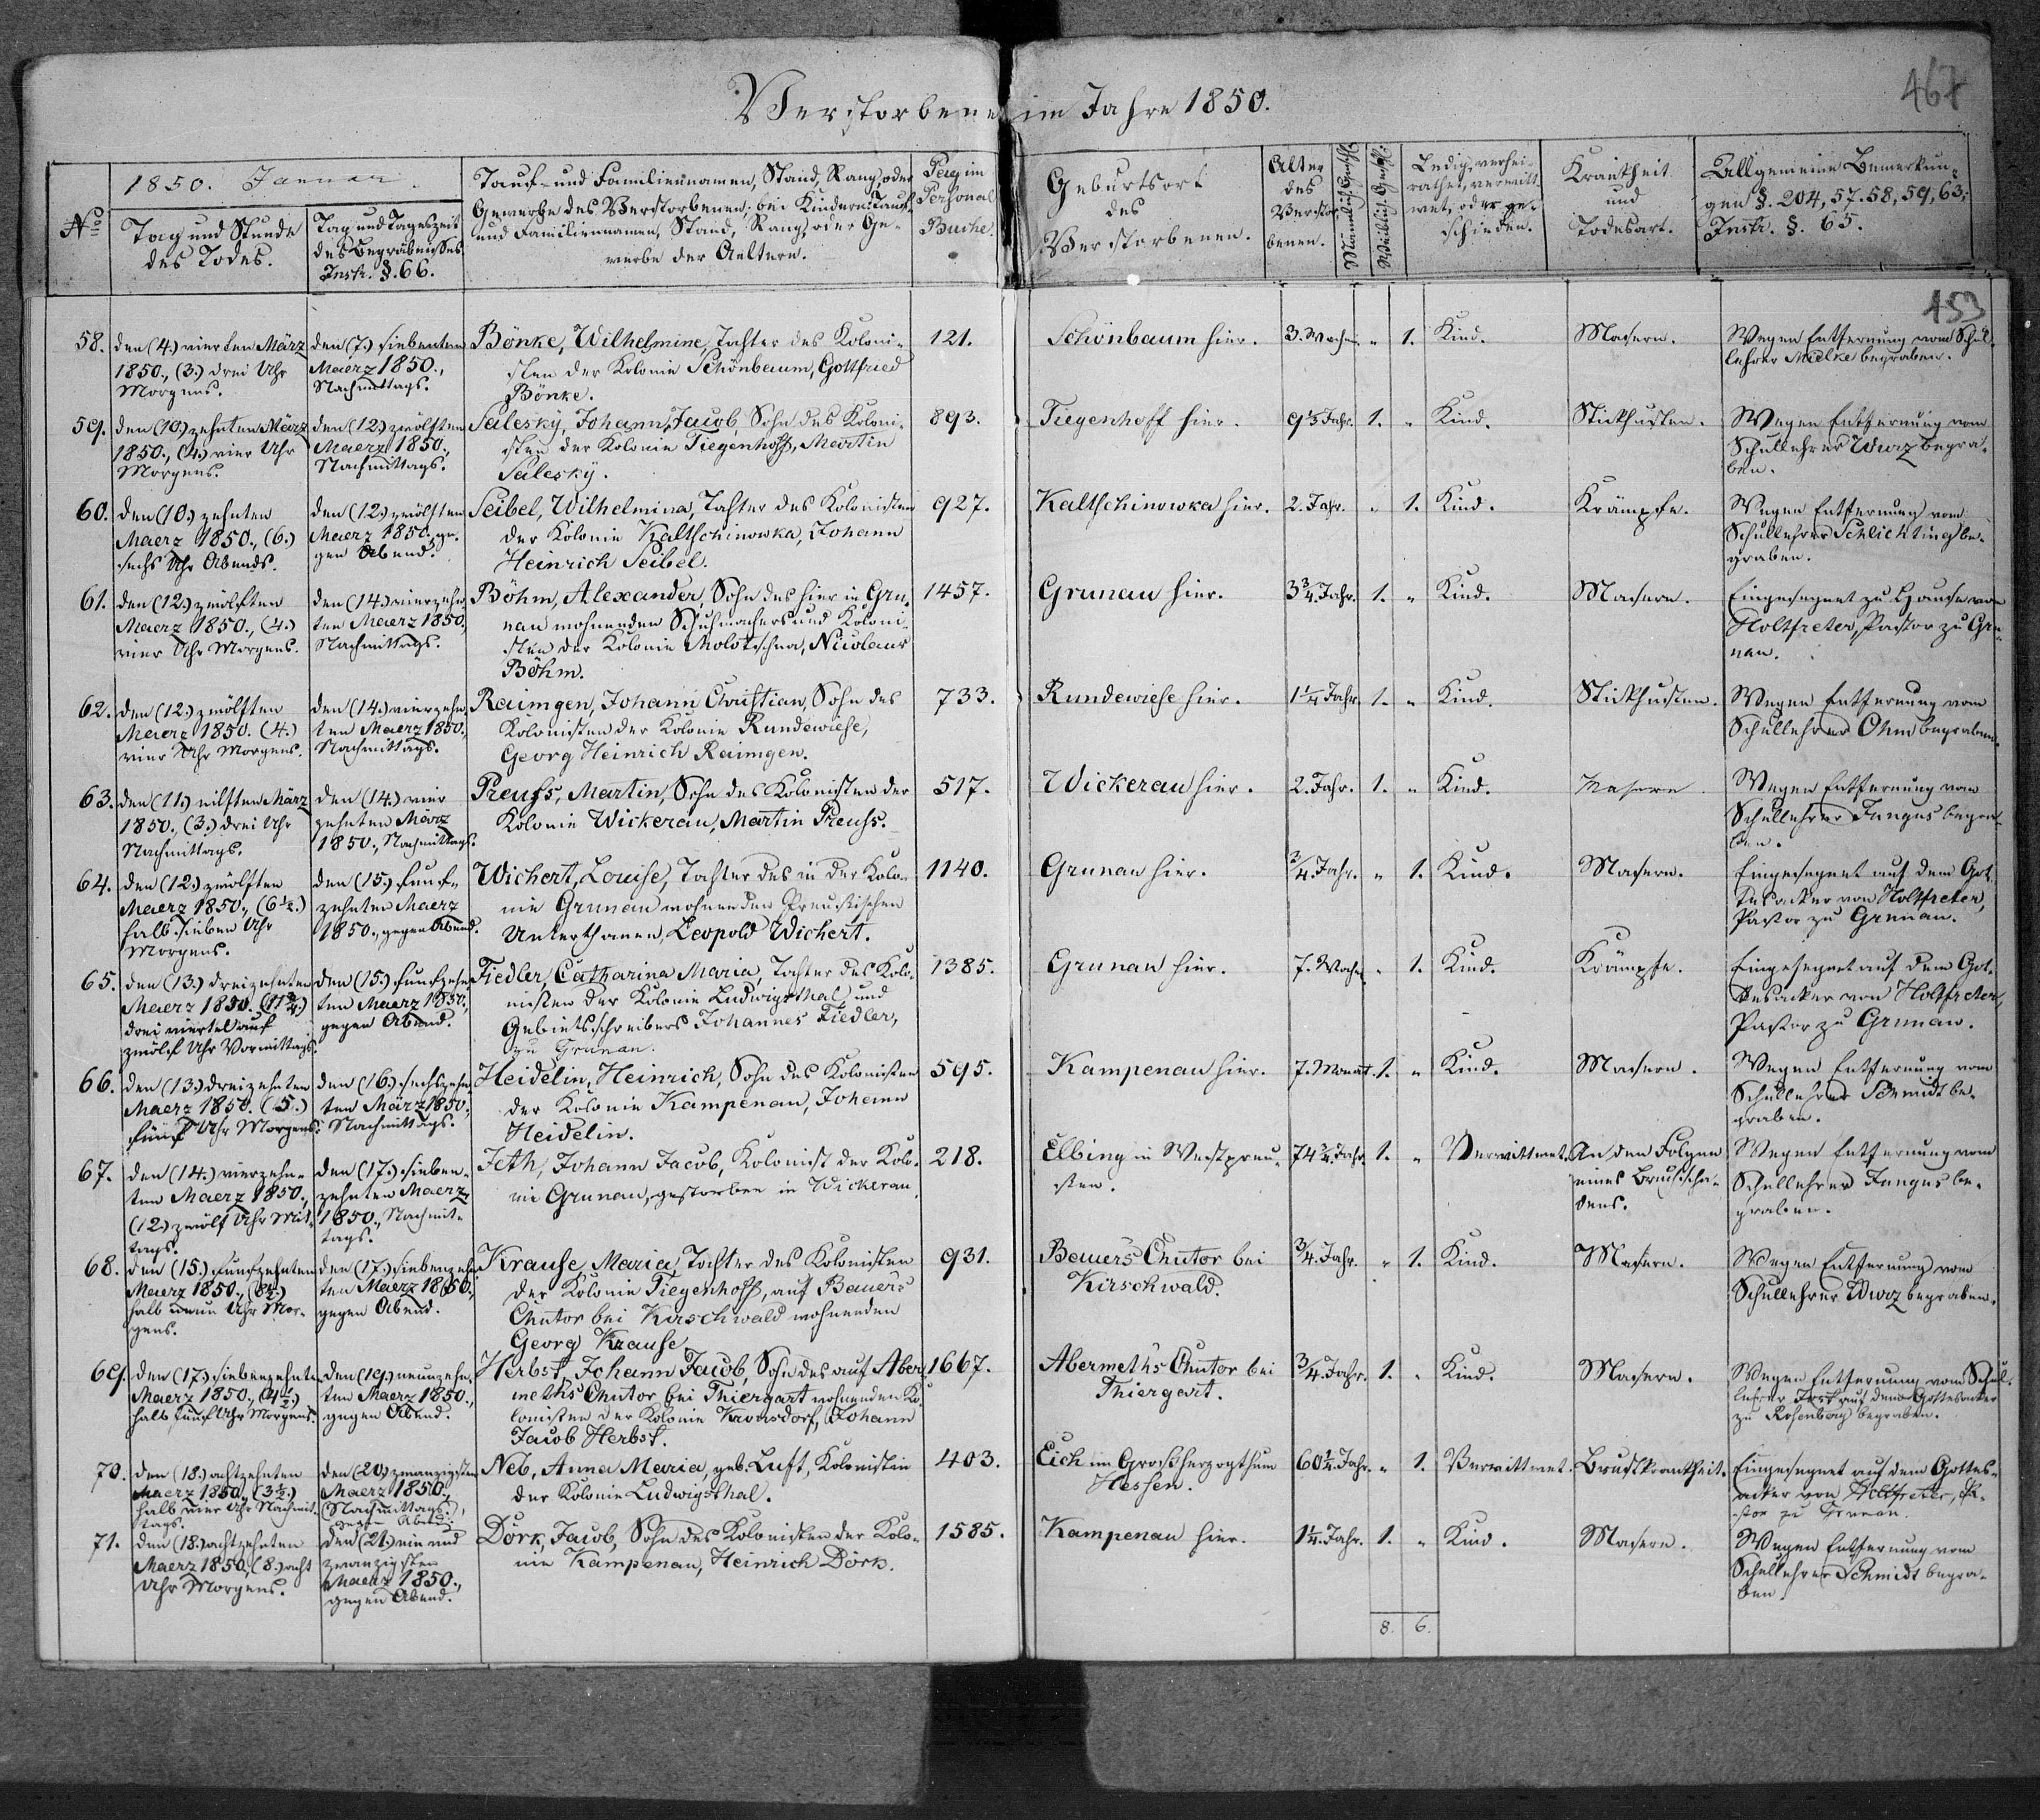 Verstorbene im Jahre 1850.
467
1850. Januar.
No
Tag und Stunde
des Todes.
Tag und Tageszeit
des Begräbnisses.
Instr. §. 66.
Tauf- und Familiennamen, Stand, Rang, oder
Gewerbe des Verstorbenen; bei Kindern: Tauf-
und Familiennamen, Stand, Rang, oder Ge-
werbe der Aeltern.
Pag im
Personal
Buche.
Geburtsort
des
Verstorbenen.
Alter
des
Verstor-
benen.
Männlich. Geschl.
Weiblich. Geschl.
Ledig, verhei-
rathet, verwitt-
wet, oder ge-
schieden.
Krankheit
und
Todesart.
Allgemeine Bemerkun-
gen §. 204, 57. 58, 59, 63;
Instr. §. 65.
153
58.
den (4.) vierten März
1850., (3.) drei Uhr
Morgens.
den (7.) siebenten
Maerz 1850.,
Nachmittags.
Bönke, Wilhelmine, Tochter des Koloni-
sten der Kolonie Schönbaum, Gottfried
Bönke.
121.
Schönbaum hier.
3. Wochen
" 1.
Kind.
Masern.
Wegen Entfernung vom Schul-
lehrer Mielke begraben.
59.
den (10.) zehnten März
1850., (4.) vier Uhr
Morgens.
den (12.) zwölften
Maerz 1850.,
Nachmittags.
Salesky, Johann Jacob, Sohn des Koloni-
sten der Kolonie Tiegenhoff, Martin
Salesky.
893.
Tiegenhoff hier.
Jahr.
1. "
Kind.
Stickhusten.
Wegen Entfernung vom
Schullehrer Wurz begra-
ben.
60.
den (10.) zehnten
Maerz 1850., (6.)
sechs Uhr Abends.
den (12.) zwölften
Maerz 1850., ge-
gen Abend.
Seibel, Wilhelmina, Tochter des Kolonisten
der Kolonie Kaltschinowka, Johann
Heinrich Seibel.
927.
Kaltschinowka hier.
2. Jahr.
" 1.
Kind.
Krämpfe.
Wegen Entfernung vom
Schullehrer Schlichting be-
graben.
61.
den (12.) zwölften
Maerz 1850., (4.)
vier Uhr Morgens.
den (14.) vierzehn-
ten Maerz 1850.,
Nachmittags.
Böhm, Alexander, Sohn des hier in Gru-
nau wohnenden Schuhmachers und Koloni-
sten der Kolonie Molotschna, Nicolaus
Böhm.
1457.
Grunau hier.
3 3/4. Jahr.
1. "
Kind.
Masern.
Eingesegnet zu Hause von
Holtfreter, Pastor zu Gru-
nau.
62.
den (12.) zwölften
Maerz 1850. (4.)
vier Uhr Morgens.
den (14.) vierzehn-
ten Maerz 1850.,
Nachmittags.
Raimgen, Johann Christian, Sohn des
Kolonisten der Kolonie Rundewiese,
Georg Heinrich Raimgen.
733.
Rundewiese hier.
1 1/4 Jahr.
1. "
Kind.
Stickhusten.
Wegen Entfernung vom
Schullehrer Ohm begraben.
63.
den (11.) eilften März
1850., (3.) drei Uhr
Nachmittags.
den (14.) vier
zehnten März
1850., Nachmittags.
Preuss, Martin, Sohn des Kolonisten der
Kolonie Wickerau, Martin Preuss.
517.
Wickerau hier.
2. Jahr.
1. "
Kind.
Masern.
Wegen Entfernung vom
Schullehrer Jungus begra-
ben.
64.
den (12.) zwölften
Maerz 1850., (6 1/2.)
halb sieben Uhr
Morgens.
den (15.) funf-
zehnten Maerz
1850., gegen Abend.
Wichert, Louise, Tochter des in der Kolo-
nie Grunau wohnenden Preussischen
Unterthanen, Leopold Wichert.
1140.
Grunau hier.
3/4. Jahr.
" 1.
Kind.
Masern.
Eingesegnet auf dem Got-
tesacker von Holtfreter,
Pastor zu Grunau.
65.
den (13.) dreizehnten
Maerz 1850. (11 3/4.)
drei viertel auf
zwölf Uhr Vormittags.
den (15.) funfzehn-
ten Maerz 1850.,
gegen Abend.
Fiedler, Catharina Maria, Tochter des Kolo-
nisten der Kolonie Ludwigsthal, und
Gebietsschreibers Johannes Fiedler,
zu Grunau.
1385.
Grunau hier.
7. Wochen
" 1.
Kind.
Krämpfe.
Eingesegnet auf dem Got-
tesacker von Holtfreter,
Pastor zu Grunau.
66.
den (13.) dreizehnten
Maerz 1850. (5.)
fünf Uhr Morgens.
den (16.) sechszehn-
ten März 1850.,
Nachmittags.
Heidelin, Heinrich, Sohn des Kolonisten
der Kolonie Kampenau, Johann
Heidelin.
595.
Kampenau hier.
7. Monat.
1. "
Kind.
Masern.
Wegen Entfernung vom
Schullehrer Schmidt be-
graben.
67.
den (14.) vierzehn-
ten Maerz 1850.,
(12.) zwölf Uhr Mit-
tags.
den (17.) sieben-
zehnten Maerz
1850., Nachmit-
tags.
Jeth, Johann Jacob, Kolonist der Kolo-
nie Grunau, gestorben in Wickerau.
218.
Elbing in Westpreu-
ssen.
74 3/4. Jahr.
1. "
Verwittwet.
An den Folgen
eines Bruchscha-
dens.
Wegen Entfernung vom
Schullehrer Jungus be-
graben.
68.
den (15.) funfzehnten
Maerz 1850., (8 1/2.)
halb neun Uhr Mor-
gens.
den (17.) siebenzehn
ten Maerz 1850.,
gegen Abend.
Krause, Maria, Tochter des Kolonisten
der Kolonie Tiegenhoff, auf Bauers
Chutor bei Kirschwald wohnenden
Georg Krause
931.
Bauers Chutor bei
Kirschwald.
3/4. Jahr.
" 1.
Kind.
Masern.
Wegen Entfernung vom
Schullehrer Wurz begraben.
69.
den (17.) siebenzehnten
Maerz 1850., (4 1/2.)
halb fünf Uhr Morgens.
den (19.) neunzehn-
ten Maerz 1850.,
gegen Abend.
Herbst, Johann Jacob, Sohn des auf Aber-
meths Chutor bei Thiergart wohnenden Ko-
lonisten der Kolonie Kronsdorf, Johann
Jacob Herbst.
1667.
Abermeths Chutor bei
Thiergart.
3/4. Jahr.
1. "
Kind.
Masern.
Wegen Entfernung vom Schul-
lehrer auf dem Gottesacker
zu Rosenberg begraben.
70.
den (18.) achtzehnten
Maerz 1850., (3 1/2.)
halb vier Uhr Nachmit-
tags.
den (20.) zwanzigsten
Maerz 1850.,
(Nachmittags.),
gegen Abend.
Neb, Anna Maria, geb. Luft, Kolonistin
der Kolonie Ludwigsthal.
403.
Eich im Grossherzogthum
Hessen.
60 1/4. Jahr.
" 1.
Verwittwet.
Brustkrankheit.
Eingesegnet auf dem Gottes-
acker von Holtfreter, Pa-
stor zu Grunau.
71.
den (18.) achtzehnten
Maerz 1850, (8.) acht
Uhr Morgens.
den (21.) ein und
zwanzigsten
Maerz 1850.,
gegen Abend.
Dörk, Jacob, Sohn des Kolonisten der Kolo-
nie Kampenau, Heinrich Dörk.
1585.
Kampenau hier.
1 1/4. Jahr.
1. "
Kind.
Masern.
Wegen Entfernung vom
Schullehrer Schmidt begra-
ben.
8. 6.